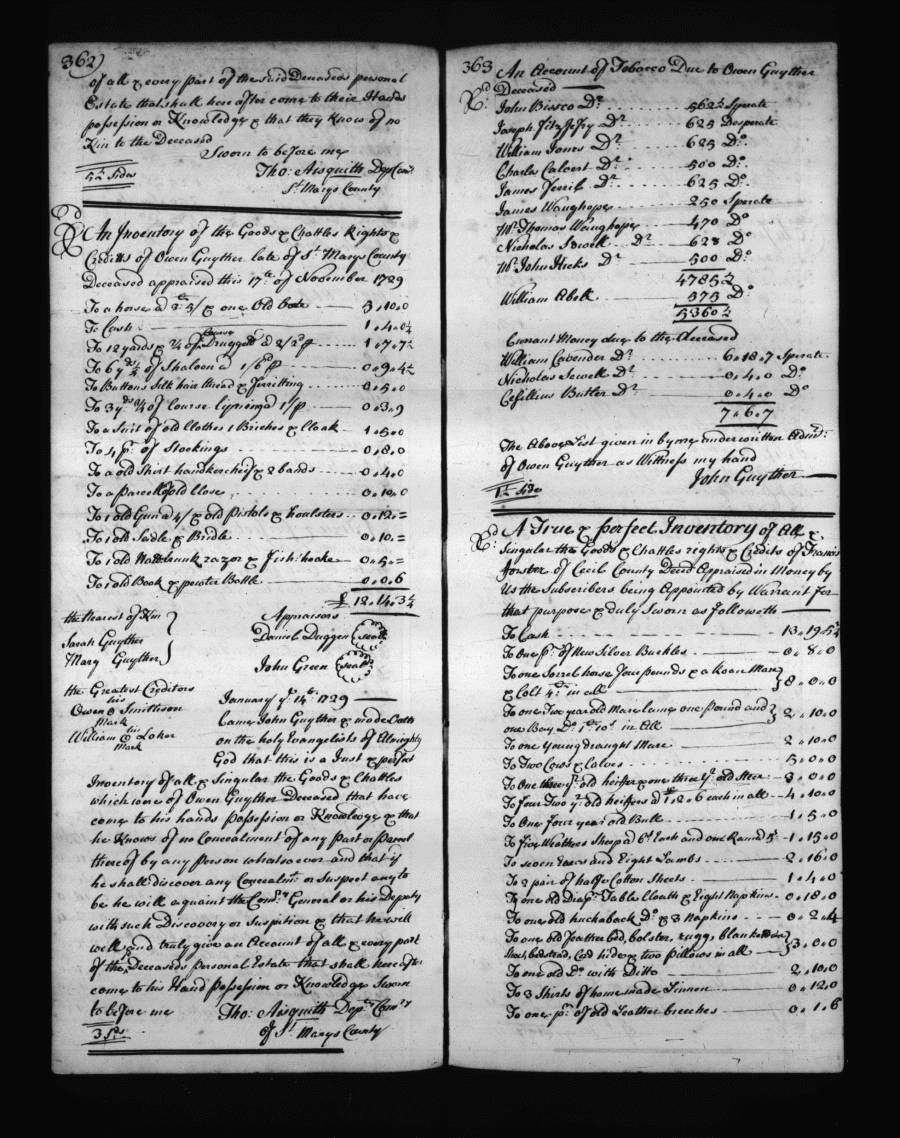 362)
of all & every part of the said Deceaseds personal
Estate that shall hereafter come to their Hands
possession or Knowledge & that they know of no
Kin to the Deceased
Sworn to before me
Tho: Aisquith Dep Com.
St. Marys County
Sides
An Inventory of the Goods & Chattles Rights &
Creditts of Owen Guyther late of St. Marys County
Deceased appraised this 17th. of November 1729
To a horse a & one Old — 3,,10,,0
To Cash — 1,,4,,0½
To 12 yards & ¾ of Course Druggett a 2/2 P — 1,,7,,7½
To 6 yds ½ of Shaloon a 1/6 P — 0,,9,,4½
To Buttons Silk hair thread & ferritting — 0,,5,,0
To 3 yds ¾ of Course lynning a 1/P — 0,,3,,9
To a Suit of old Clothes 1 Britches & Cloak — 1,,5,,0
To 4 pr. of Stockings — 0,,8,,0
To a old Shirt handkercheif & 2 bands — 0,,4,,0
To a parcell of old close — 0,,10,,0
To 1 old Gun a 4/ & old Pistols & houlsters — 0,,12,,=
To 1 old Sadle & Bridle — 0,,10,,=
To 1 old razor & fish: hooke — 0,,5,,=
To 1 old Book & pewter Bottle — 0,,0,,6
£ 12,,14,,3¼
the Nearest of Kin
Sarah Guyther
Mary Guyther
Appraisors
Daniel Duggen seal
John Green seal
the Greatest Creditors
Owen his Mark Smittson
William his mark Loker
January ye. 14th. 1729
Came John Guyther & made Oath
on the holy Evangelists of Almighty
God that this is a Just & perfect
Inventory of all & Singular the Goods & Chattles
which were of Owen Guyther Deceased that have
come to his hands Possession or Knowledge & that
he Knows of no Concealment of any Part or Parcel
thereof by any Person whatsoever and that if
he shall discover any Concealmt. or Suspect any to
be he will acquaint the Comry General or his Deputy
with such Discovery or Suspition & that he will
well and truly give an Account of all & every part
of the Deceaseds Personal Estate that shall hereafter
come to his Hand Possession or Knowledge Sworn
to before me
Tho: Aisquith Depty Comry
of St. Marys County
3 Sds.
363
An Account of Tobacco Due to Owen Guyther
Deceased
John Bissco Dr. — 562½ Sperate
Joseph Fitz Jefry Dr — 625 Desperate
William Jones Dr — 625 Do.
Charles Calvert Dr — 500 Do.
James Dr. — 625 Do.
James Waughope — 250 Sperate
Mr. Thomas Waughope — 470 Do
Nicholas Sewell Dr — 628 Do
Mr. John Hicks Dr — 500 Do.
4785½
William Abell — 575 Do.
5360½
Currant Money due to the deceased
William Cavender Dr — 6,,18,,7 Sperate
Nicholas Sewell Dr — 0,,4,,0 Do
Butler Dr — 0,,4,,0 Do
7,,6,,7
The Above List given in by me underwritten Admr.
of Owen Guyther as Wittness my hand
John Guyther
1½ Side
A True & perfect Inventory of All &
Singular the Goods & Chattles rights & Credits of Francis
Forster of Cecil County Decd Appraised in Money by
Us the Subscribers being Appointed by Warrant for
that purpose & duly Sworn as followeth
To Cash — 13,,19,,5¼
To One pr. of New Silver Buckles — 0,,8,,0
To one Sorrel horse four pounds & a Roan Mare
& Colt 4£ in all — 8,,0,,0
To one Two year old Mare lame one Pound and
one Bay Do. 1£ 10s in All — 2,,10,,0
To one Young draught Mare — 2,,10,,0
To Two Cows & Calves — 5,,0,,0
To One three yr. old heiffer & one three yr old Steer — 3,,0,,0
To four Two yr. old heiffers a £1,,2,,6 each in all — 4,,10,,0
To One four year old Bull — 1,,5,,0
To five Weathers Sheep a 6s Each and one Ram a 5s — 1,,15,,0
To seven Ewes and Eight Lambs — 2,,16,,0
To 2 pair of halfe Cotton Sheets — 1,,4,,0
To one old Diapr. Table Cloath & Eight Napkins — 0,,18,,0
To one old huckaback Do. & 3 Napkins — 0,,2,,4
To one old feather bed, bolster, rugg, blankett
Sheet, bedstead, Cord hide & two Pillows in all — 3,,0,,0
To one old Do. with Ditto — 2,,10,,0
To 3 Shirts of homemade Linnen — 0,,12,,0
To one pr. of old Leather breeches — 0,,1,,6